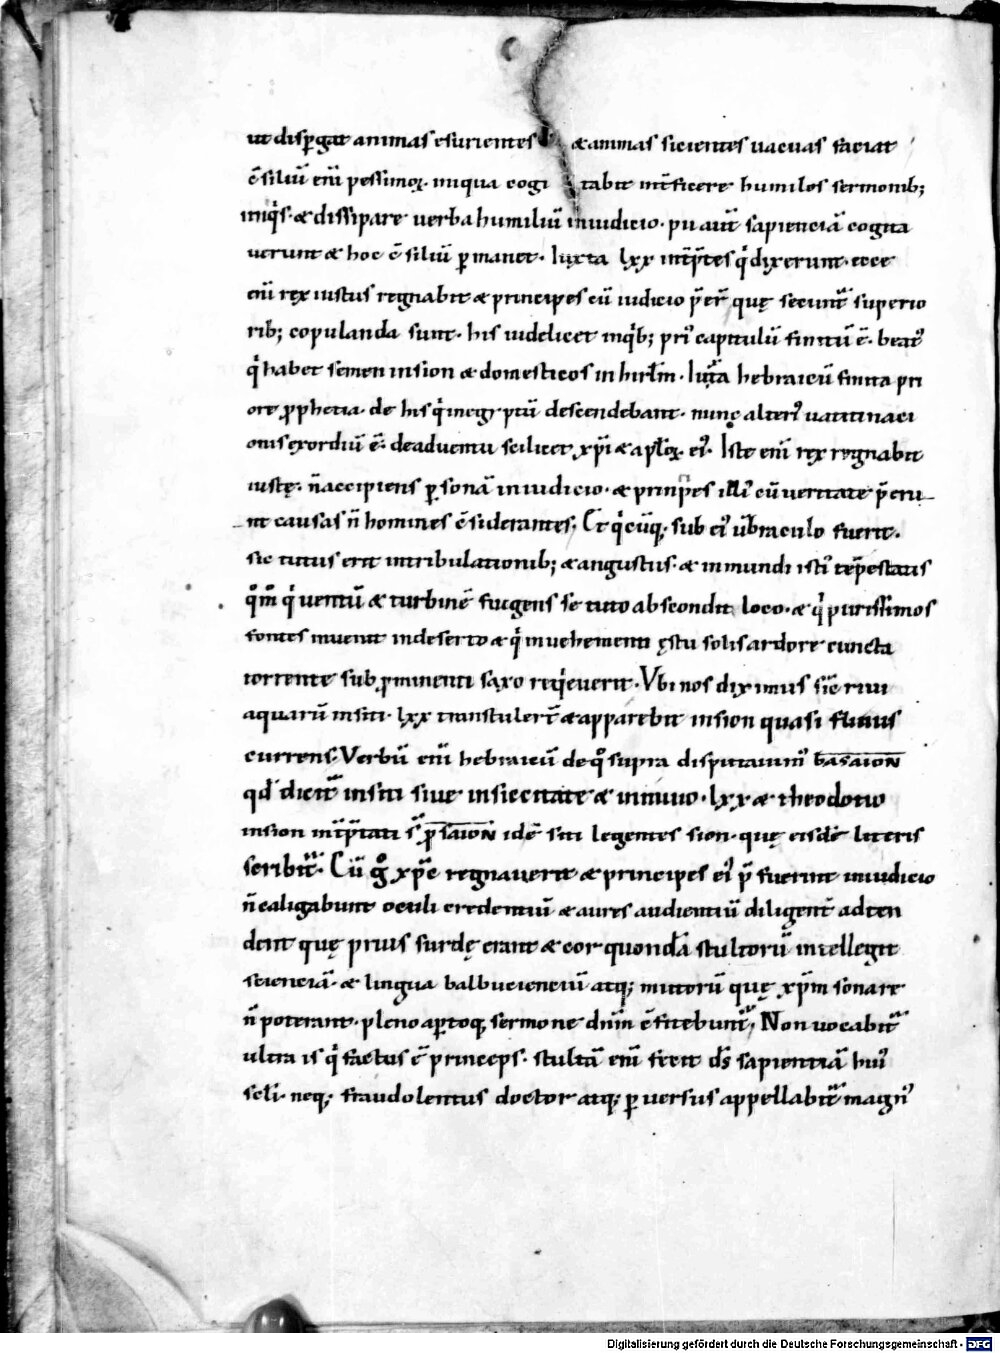 ut disp̱gat animas esurientes & animas sicientes uacuas faciat
c̄siliū eni̅ pessimoꝝ. iniqua cogitabit int̅ficere humiles sermonib;
iniq̇s. & dissipare uerba humiliū iniudicio. pii aut̅ sapienciā cogita
uerunt & hoc c̄siliū ꝑmanet. Iuxta lxx int̅p̅tes q̇ dixerunt. ecce
eni̅ rex iustus regnabit & principes cū iudicio p̅er̅ quę secunt᷑ superio
rib; copulanda sunt. his uidelicet inq̇b; pri᾿ capitulū finitū ē. beat᾿
q̇ habet semen insion & domesticos in hirl̅m. Iuxta hebraicū finita pri
ore ꝓphetia. de his q̇ inegyptū descendebant. nunc alteri᾿ uaticinaci
onis exordiū ē. deaduentu scilicet xp̅i & apl̅oꝝ ei᾿. Iste eni̅ rex regnabit
iustę. n̄ accipiens ꝑsonā iniudicio. & principes illi᾿ cū ueritate p̅eru
nt causas n̄ homines c̄siderantes; Et q̇cūq; sub ei᾿ ūbraculo fuerit.
sic tutus erit intribulationib; & angustus. & inmundi isti᾿ tēpestatis
q̊m̅ q̇ uentū & turbinē fugens se tuto abscondit loco. & q̇ purissimos
fontes inuenit indeserto & q̇ inuehementi ęstu solis ardore cuncta
torrente sub ꝓminenti saxo req̇euerit. Vbi nos diximus sic̄ riui
aquarū insiti. lxx transtuler̅t & apparebit insion quasi fluuius
currens. Verbū eni̅ hebraicū de q̊ supra disputauim᾿ basaion
qd̅ dicit᷑ insiti siue insiccitate & inuiuo. lxx & theodotio
insion int̅p̅tati s̅ ꝓ saion idē siti legentes sion. quę eisdē literis
scribit᷑. Cū g̊ xp̅c regnauerit & principes ei᾿ p̅fuerint iniudicio
n̄ caligabunt oculi credentiū & aures audientiū diligent̅ adten
dent quę prius surdę erant & cor quondā stultorū intellegit
scienciā. & lingua balbucienciū atq; mutorū quę xp̅m sonare
n̄ poterant. pleno aꝑtoq; sermone dn̅m c̄fitebunt᷑; Non uocabit᷑
ultra is q̇ factus ē princeps. stultā eni̅ fecit d̅s sapientiā hui᾿
scl̅i. neq; fraudolentus doctor atq; ꝑuersus appellabit᷑ magn᾿
Digitalisierung gefördert durch die Deutsche Forschungsgemeinschaft - DFG